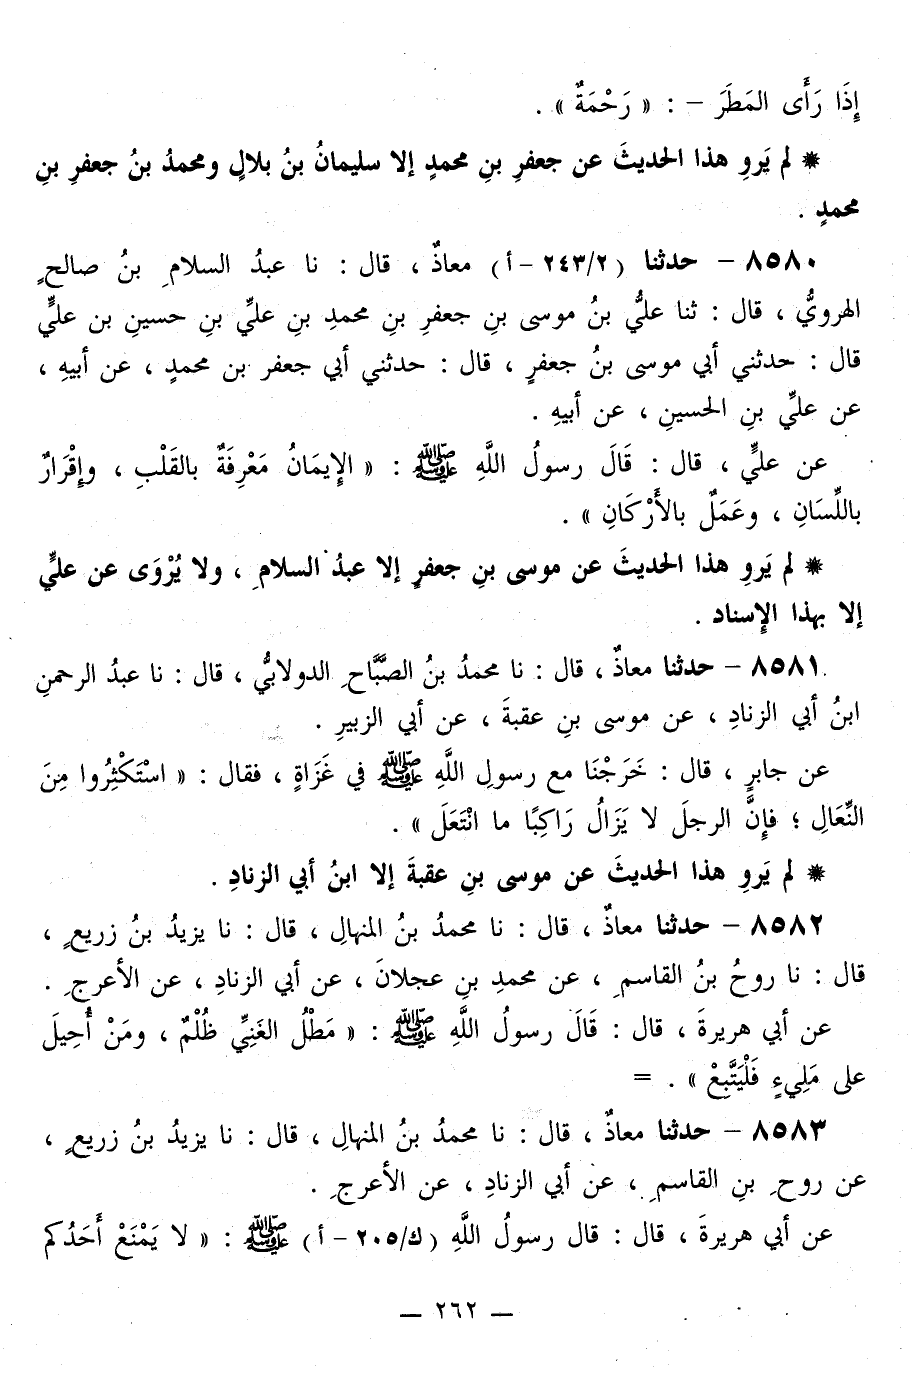 إِذَا رَأَى المَطَرَ – : « رَحْمَةٌ » .
* لم يَروِ هذا الحديثَ عن جعفرِ بنِ محمدٍ إلا سليمانُ بنُ بلالٍ ومحمدُ بنُ جعفرِ بنِ
محمدٍ .
٨٥٨٠ – حدثنا (٢٤٣/٢ – أ) معاذٌ ، قال : نا عبدُ السلامِ بنُ صالحٍ
الهرويُّ ، قال : ثنا عليُّ بنُ موسى بنِ جعفرِ بنِ محمدِ بنِ عليِّ بنِ حسينِ بن عليٍّ
قال : حدثني أبي موسى بنُ جعفرٍ ، قال : حدثني أبي جعفر بن محمدٍ ، عن أبيهِ ،
عن عليِّ بنِ الحسينِ ، عن أبيهِ .
عن عليٍّ ، قال : قَالَ رسولُ اللَّهِ ﷺ : « الإِيمَانُ مَعْرِفَةٌ بالقَلْبِ ، وإِقْرَارٌ
باللِّسَانِ ، وعَمَلٌ بالأَرْكَانِ » .
* لم يَروِ هذا الحديثَ عن موسى بنِ جعفرٍ إلا عبدُ السلامِ ، ولا يُرْوَى عن عليٍّ
إلا بهذا الإِسناد .
٨٥٨١ – حدثنا معاذٌ ، قال : نا محمدُ بنُ الصَّبَّاحِ الدولابيُّ ، قال : نا عبدُ الرحمنِ
ابنُ أبي الزنادِ ، عن موسى بنِ عقبةَ ، عن أبي الزبيرِ .
عن جابرٍ ، قال : خَرَجْنَا مع رسولِ اللَّهِ ﷺ في غَزَاةٍ ، فقال : « اسْتَكْثِرُوا مِنَ
النِّعَالِ ؛ فإِنَّ الرجلَ لا يَزَالُ رَاكِبًا ما انْتَعَلَ » .
* لم يَروِ هذا الحديثَ عن موسى بنِ عقبةَ إلا ابنُ أبي الزنادِ .
٨٥٨٢ – حدثنا معاذٌ ، قال : نا محمدُ بنُ المنهالِ ، قال : نا يزيدُ بنُ زريعٍ ،
قال : نا روحُ بنُ القاسمِ ، عن محمدِ بنِ عجلانَ ، عن أبي الزنادِ ، عن الأعرجِ .
عن أبي هريرةَ ، قال : قَالَ رسولُ اللَّهِ ﷺ : « مَطْلُ الغَنِيِّ ظُلْمٌ ، ومَنْ أُحِيلَ
على مَلِيءٍ فَلْيَتَّبِعْ » . =
٨٥٨٣ – حدثنا معاذٌ ، قال : نا محمدُ بنُ المنهالِ ، قال : نا يزيدُ بنُ زريعٍ ،
عن روحِ بنِ القاسمِ ، عن أبي الزنادِ ، عن الأعرجِ .
عن أبي هريرةَ ، قال : قال رسولُ اللَّهِ (ك/٢٠٥ – أ) ﷺ : « لا يَمْنَعْ أَحَدُكم
– ٢٦٢ –